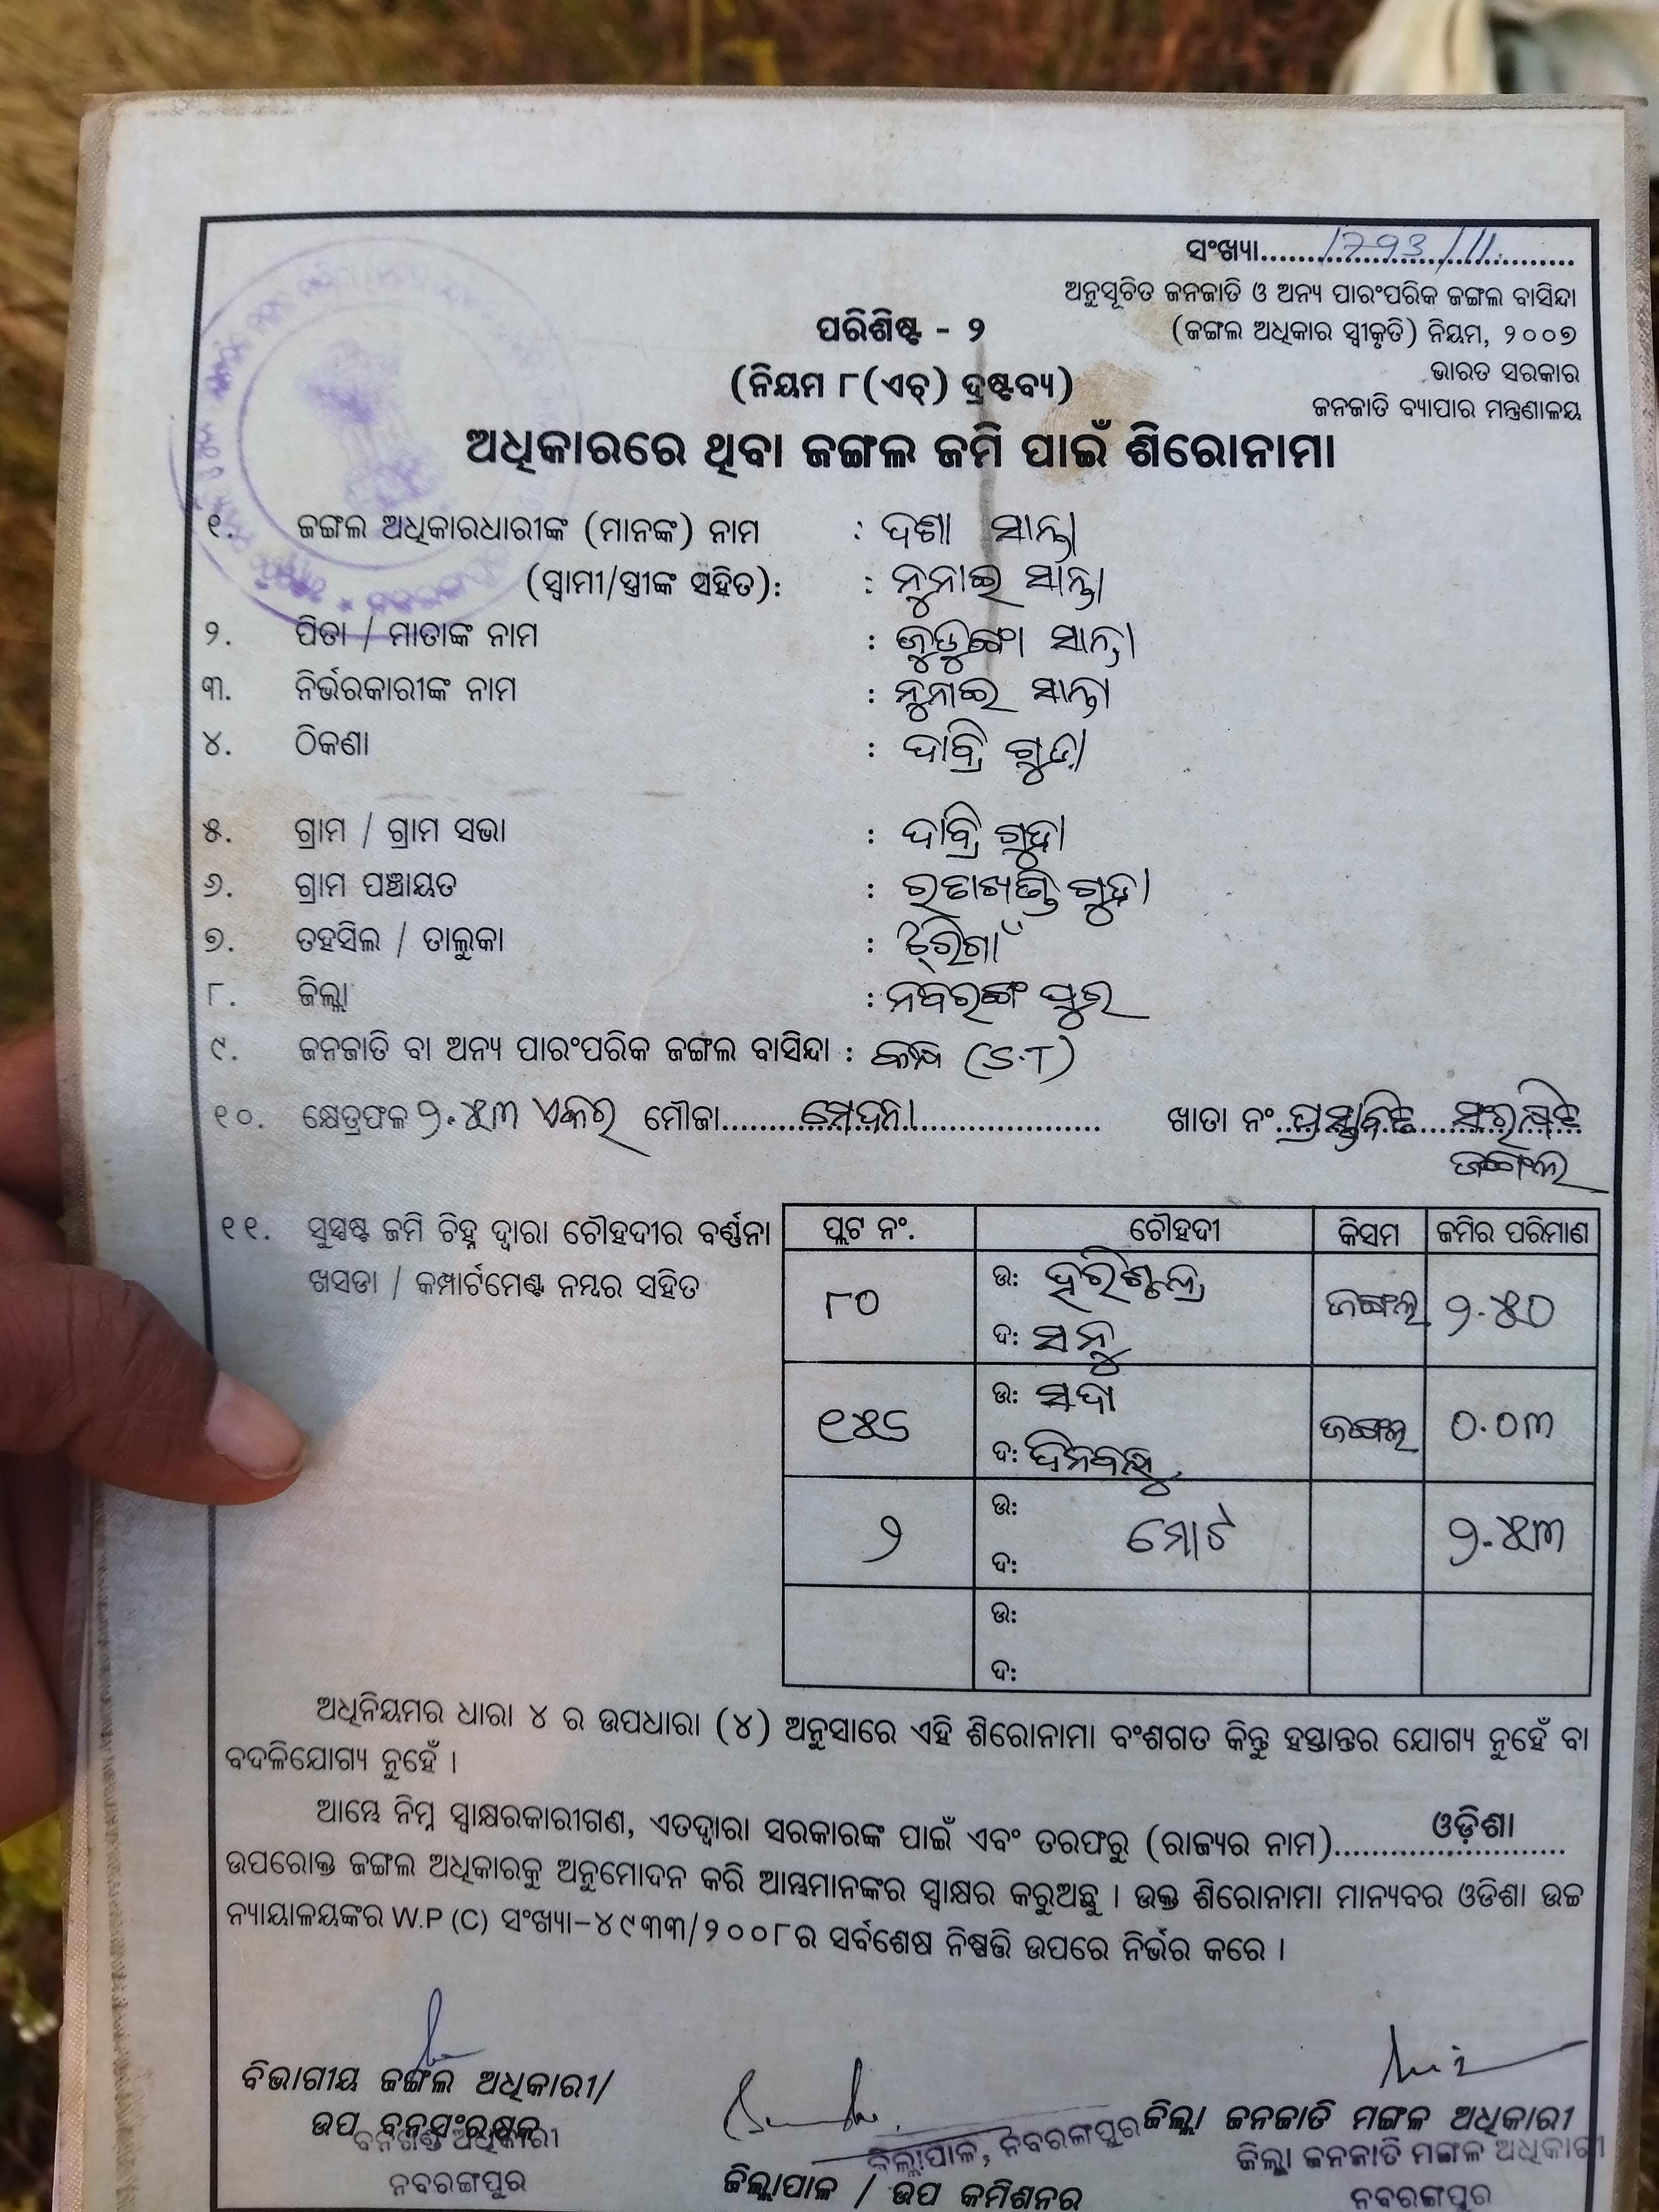 ସଂଖ୍ୟା..............................
ଅନୁସୂଚିତ ଜନଜାତି ଓ ଅନ୍ୟ ପାରଂପରିକ ଜଙ୍ଗଲ ବାସିନ୍ଦା
(ଜଙ୍ଗଲ ଅଧିକାର ସ୍ୱୀକୃତି) ନିୟମ, ୨୦୦୭
ଭାରତ ସରକାର
ଜନଜାତି ବ୍ୟାପାର ମନ୍ତ୍ରଣାଳୟ
ପରିଶିଷ୍ଟ - ୨
(ନିୟମ ୮(ଏଚ୍) ଦ୍ରଷ୍ଟବ୍ୟ)
ଅଧିକାରରେ ଥିବା ଜଙ୍ଗଲ ଜମି ପାଇଁ ଶିରୋନାମା
୧. ଜଙ୍ଗଲ ଅଧିକାରଧାରୀଙ୍କ (ମାନଙ୍କ) ନାମ : ଦଶା ସାନ୍ତା
(ସ୍ୱାମୀ/ସ୍ତ୍ରୀଙ୍କ ସହିତ): : ନୁନାଇ ସାନ୍ତା
୨. ପିତା / ମାତାଙ୍କ ନାମ : ସାନ୍ତା
୩. ନିର୍ଭରକାରୀଙ୍କ ନାମ : ନୁନାଇ ସାନ୍ତା
୪. ଠିକଣା : ଦାବ୍ରି ଗୁଡା
୫. ଗ୍ରାମ / ଗ୍ରାମ ସଭା : ଦାବ୍ରି ଗୁଡା
୬. ଗ୍ରାମ ପଞ୍ଚାୟତ : ଗୁଡା
୭. ତହସିଲ / ତାଲୁକା :
୮. ଜିଲ୍ଲା : ନବରଙ୍ଗ ପୁର
୯. ଜନଜାତି ବା ଅନ୍ୟ ପାରଂପରିକ ଜଙ୍ଗଲ ବାସିନ୍ଦା : କନ୍ଧ (S.T)
୧୦. କ୍ଷେତ୍ରଫଳ ୨.୫୩ ଏକର ମୌଜା.......ମେଦନା....... ଖାତା ନଂ..ପ୍ରସ୍ତାବିତ ସଂରକ୍ଷିତ
ଜଙ୍ଗଲ
୧୧. ସୁସ୍ପଷ୍ଟ ଜମି ଚିହ୍ନ ଦ୍ୱାରା ଚୌହଦୀର ବର୍ଣ୍ଣନା
ଖସଡା / କମ୍ପାର୍ଟମେଣ୍ଟ ନମ୍ବର ସହିତ
ପ୍ଲଟ ନଂ. ଚୌହଦୀ କିସମ ଜମିର ପରିମାଣ
୮୦ ଉଃ ହରିଶ୍ଚନ୍ଦ୍ର ଜଙ୍ଗଲ ୨.୫୦
ଦଃ ସନୁ
୧୫୬ ଉଃ ସଦା ଜଙ୍ଗଲ ୦.୦୩
ଦଃ ଦିନବନ୍ଧୁ
୨ ଉଃ ମୋଟ ୨.୫୩
ଦଃ
ଉଃ
ଦଃ
ଅଧିନିୟମର ଧାରା ୪ ର ଉପଧାରା (୪) ଅନୁସାରେ ଏହି ଶିରୋନାମା ବଂଶଗତ କିନ୍ତୁ ହସ୍ତାନ୍ତର ଯୋଗ୍ୟ ନୁହେଁ ବା
ବଦଳିଯୋଗ୍ୟ ନୁହେଁ ।
ଆମ୍ଭେ ନିମ୍ନ ସ୍ୱାକ୍ଷରକାରୀଗଣ, ଏତଦ୍ୱାରା ସରକାରଙ୍କ ପାଇଁ ଏବଂ ତରଫରୁ (ରାଜ୍ୟର ନାମ)........ଓଡ଼ିଶା........
ଉପରୋକ୍ତ ଜଙ୍ଗଲ ଅଧିକାରକୁ ଅନୁମୋଦନ କରି ଆମ୍ଭମାନଙ୍କର ସ୍ୱାକ୍ଷର କରୁଅଛୁ । ଉକ୍ତ ଶିରୋନାମା ମାନ୍ୟବର ଓଡିଶା ଉଚ୍ଚ
ନ୍ୟାୟାଳୟଙ୍କର W.P (C) ସଂଖ୍ୟା-୪୯୩୩/୨୦୦୮ର ସର୍ବଶେଷ ନିଷ୍ପତ୍ତି ଉପରେ ନିର୍ଭର କରେ ।
ବିଭାଗୀୟ ଜଙ୍ଗଲ ଅଧିକାରୀ/
ଉପ ବନସଂରକ୍ଷକ
ବନଖଣ୍ଡ ଅଧିକାରୀ
ନବରଙ୍ଗପୁର
ଜିଲ୍ଲାପାଳ, ନବରଙ୍ଗପୁର
ଜିଲ୍ଲାପାଳ / ଉପ କମିଶନର
ଜିଲ୍ଲା ଜନଜାତି ମଙ୍ଗଳ ଅଧିକାରୀ
ଜିଲ୍ଲା ଜନଜାତି ମଙ୍ଗଳ ଅଧିକାରୀ
ନବରଙ୍ଗପୁର